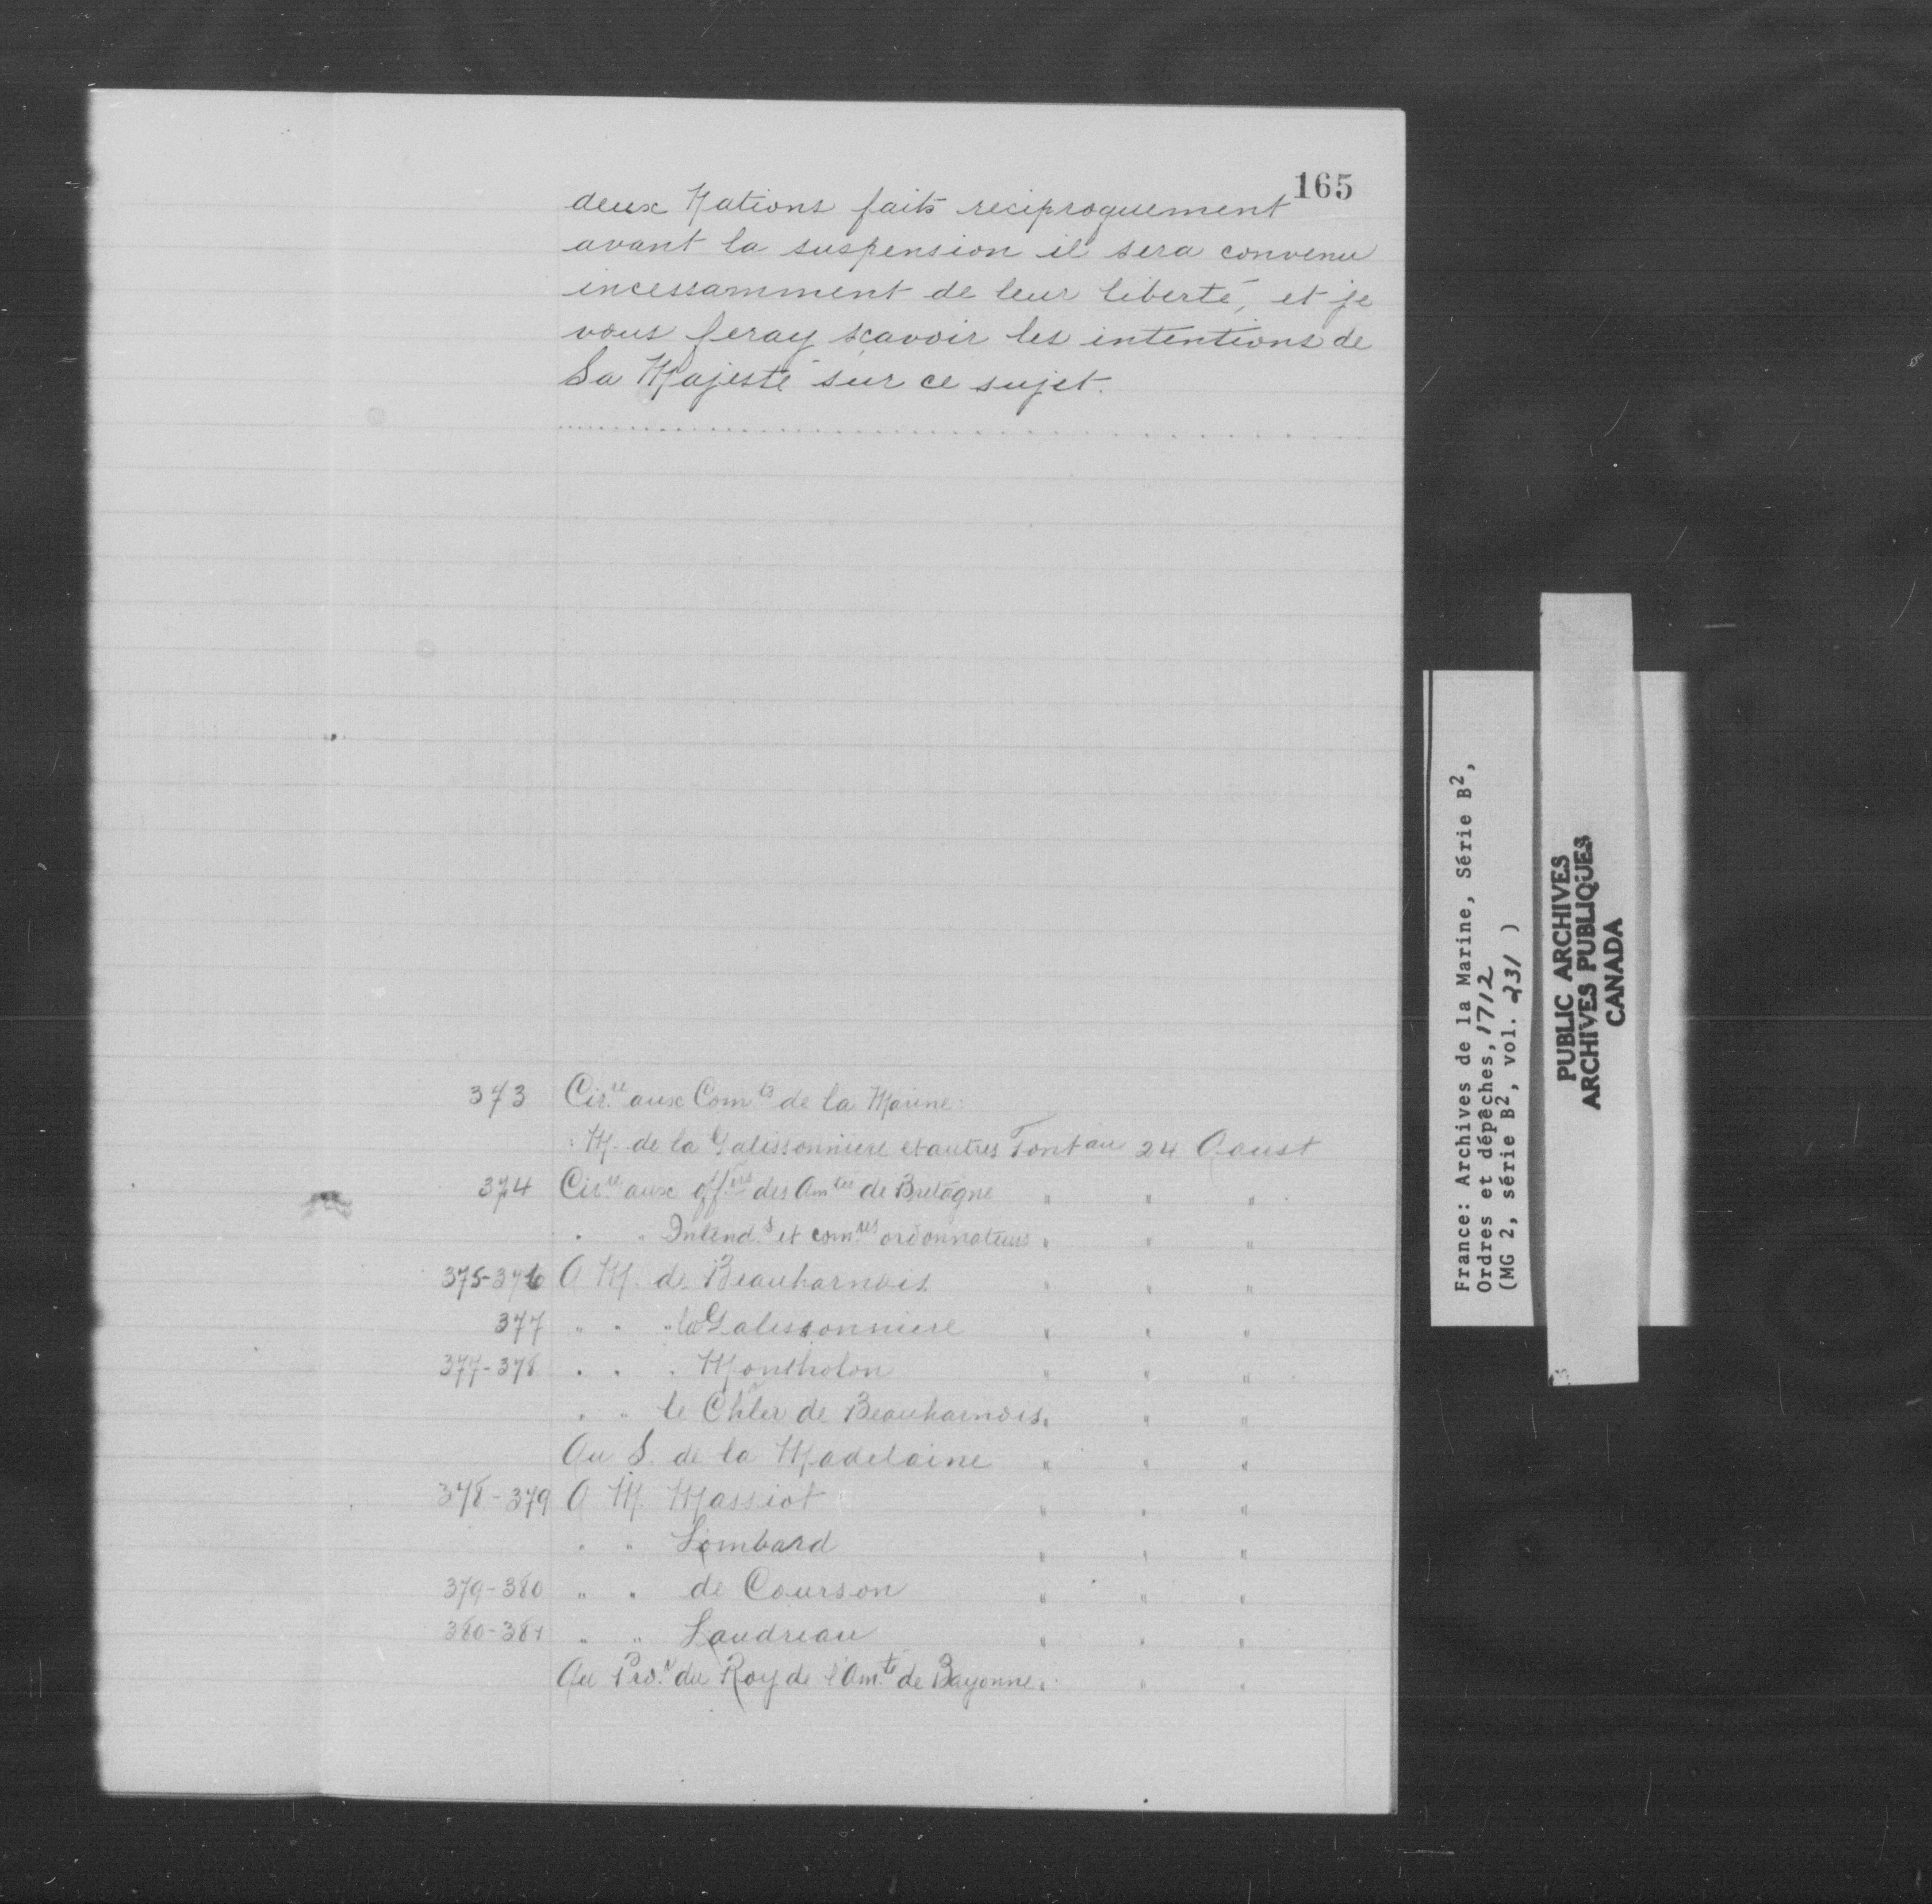 165
deux Nations faits reciproquement
avant la suspension il sera convenu
incessamment de leur liberté, et je
vous feray scavoir les intentions de
Sa Majesté sur ce sujet.
373 Cir.re aux Com.ts de la Marine:
: M. de la Galissonniere et autres Font au 24 Aoust
374 Cir.re aux off.ers des Am.tés de Bretagne " " "
" " Intend.s et com.res ordonnateurs " " "
375-376 A M. de Beauharnois " " "
377 " " " la Galissonniere " " "
377-378 " " " Montholon " " "
" " le Chler de Beauharnois " " "
Au S. de la Madelaine " " "
378-379 A M. Massiot " " "
" " Lombard " " "
379-380 " " de Courson " " "
380-381 " " Laudreau " " "
Au Pro.r du Roy de l'Am.té de Bayonne " " "
France: Archives de la Marine, Série B2,
Ordres et dépêches, 1712
(MG 2, série B2, vol. 231 )
PUBLIC ARCHIVES
ARCHIVES PUBLIQUES
CANADA